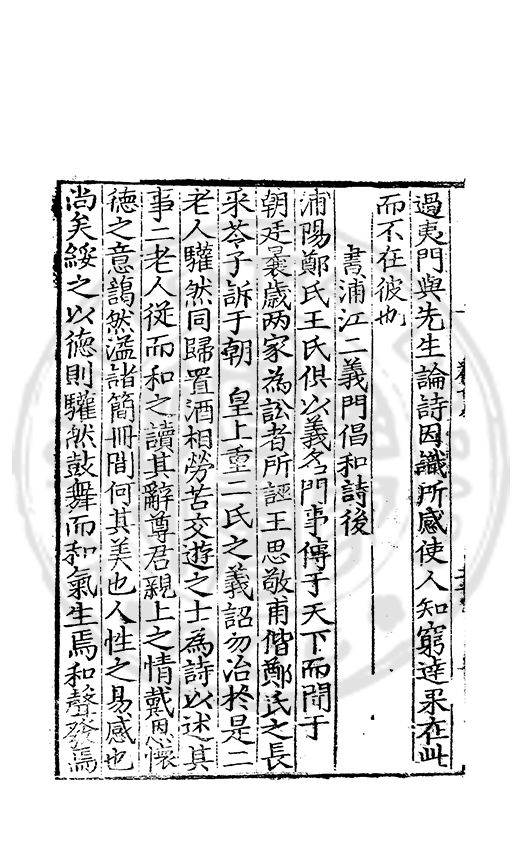 過夷門與先生論詩因識所感使人知窮達果在此
而不在彼也
書浦江二義門倡和詩後
浦陽鄭氏王氏俱以義名門事傳于天下而聞于
朝廷曩歲两家為訟者所誣王思敬甫偕鄭氏之長
釆苓子訴于朝 皇上重二氏之義詔勿治於是二
老人驩然同歸置酒相勞苦交遊之士為詩以述其
事二老人從而和之讀其辭尊君親上之情戴恩懷
德之意藹然溢諸簡冊間何其美也人性之易感也
尚矣綏之以德則驩然鼓舞而和氣生焉和聲發焉